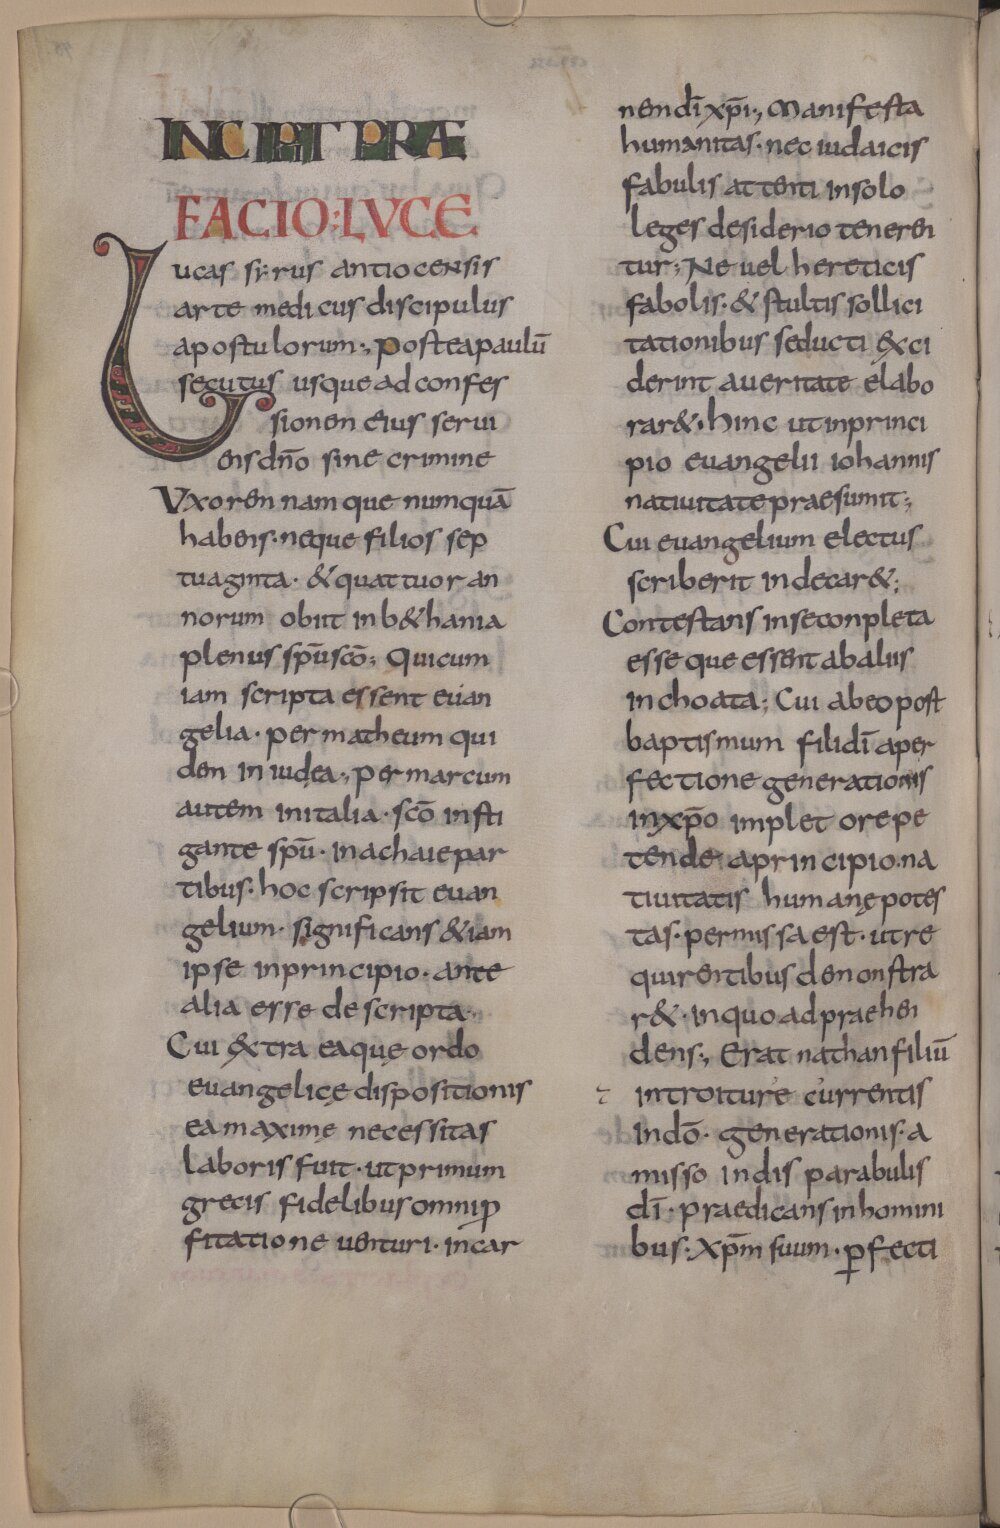 INCIPIT PRAE
FACIO:LVCE
Lucas sirus antiocensis
arte medicus discipulus
apostulorum:, posteapaulū
secutus usque ad confes
sionen eius serui
ens dño sine crimine
Vxoren nam que numquā
habens· neque filios sep
tuaginta· & quattuor an
norum obiit in b&hania
plenus sp̄u sc̄o; Qui cum
iam scripta essent euan
gelia· per matheum qui
den in iudea:, per marcum
autem in italia· sc̄o insti
gante sp̄u· in achaie par
tibus· hoc scripsit euan
gelium· significans & iam
ipse in principio· ante
alia esse descripta·
Cui extra ea quę ordo
euangelicę dispositionis
ea maximę necessitas
laboris fuit· ut primum
grecis fidelibus omni ꝓ
fitatione uenturi· in car
nen dī xp̄i:, Manifesta
humanitas· nec iudaicis
fabulis attenti in solo
leges desiderio teneren
tur; Ne uel hereticis
fabolis· & stultis sollici
tationibus seducti exci
derint a ueritate elabo
rar&· hinc ut in princi
pio euangelii iohannis
natiuitate praesumit;
Cui euangelium electus
scriberit indecar&;
Contestans in se conpleta
esse que essent ab aliis
inchoata; Cui ab eo post
baptismum fili dī a per
fectione generationis
in xp̄o implet ore pe
tende a principio na
tiuitatis humanę potes
tas· permissa est· ut re
quirentibus denonstra
r&· in quo adpraehen
dens:, Erat nathan filiū
introiture currentis
in dō· generationis· a
misso indisparabulis
dī· praedicans in homini
bus· xp̄m suum· ꝑfecti